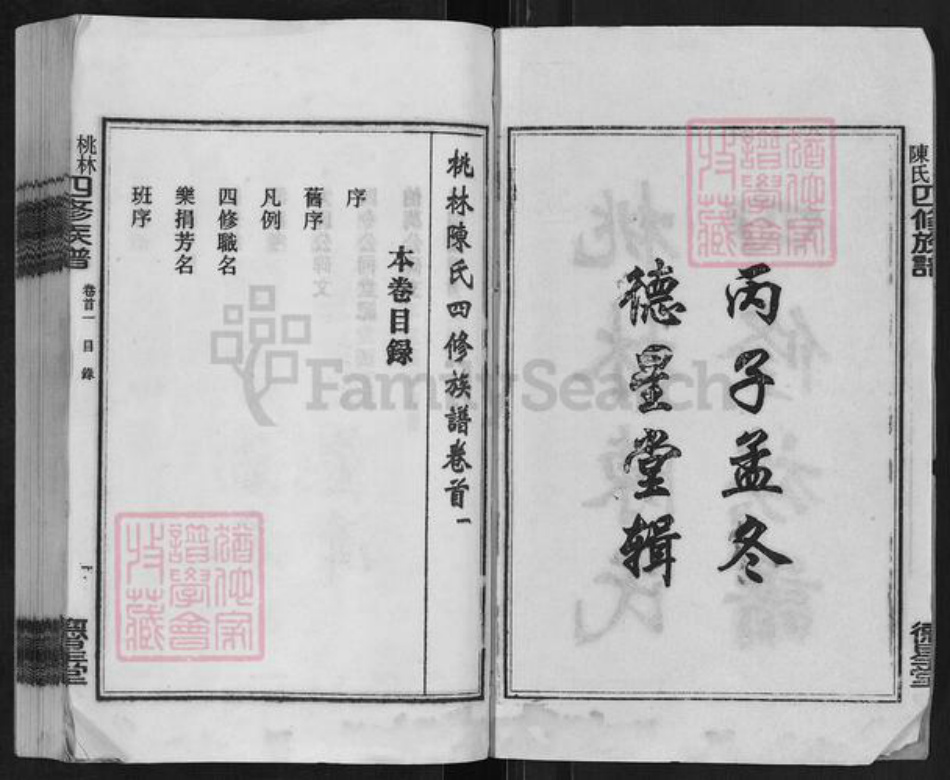 陳氏四修族譜
德星堂
丙子孟冬
德星堂輯
桃林陳氏四修族譜卷首一
本卷目錄
序
舊序
凡例
四修職名
樂捐芳名
班序
桃林四修族譜
卷首一
目錄
一
德星堂
FamilySearch
猶他家
譜學會
收藏
猶他家
譜學會
收藏